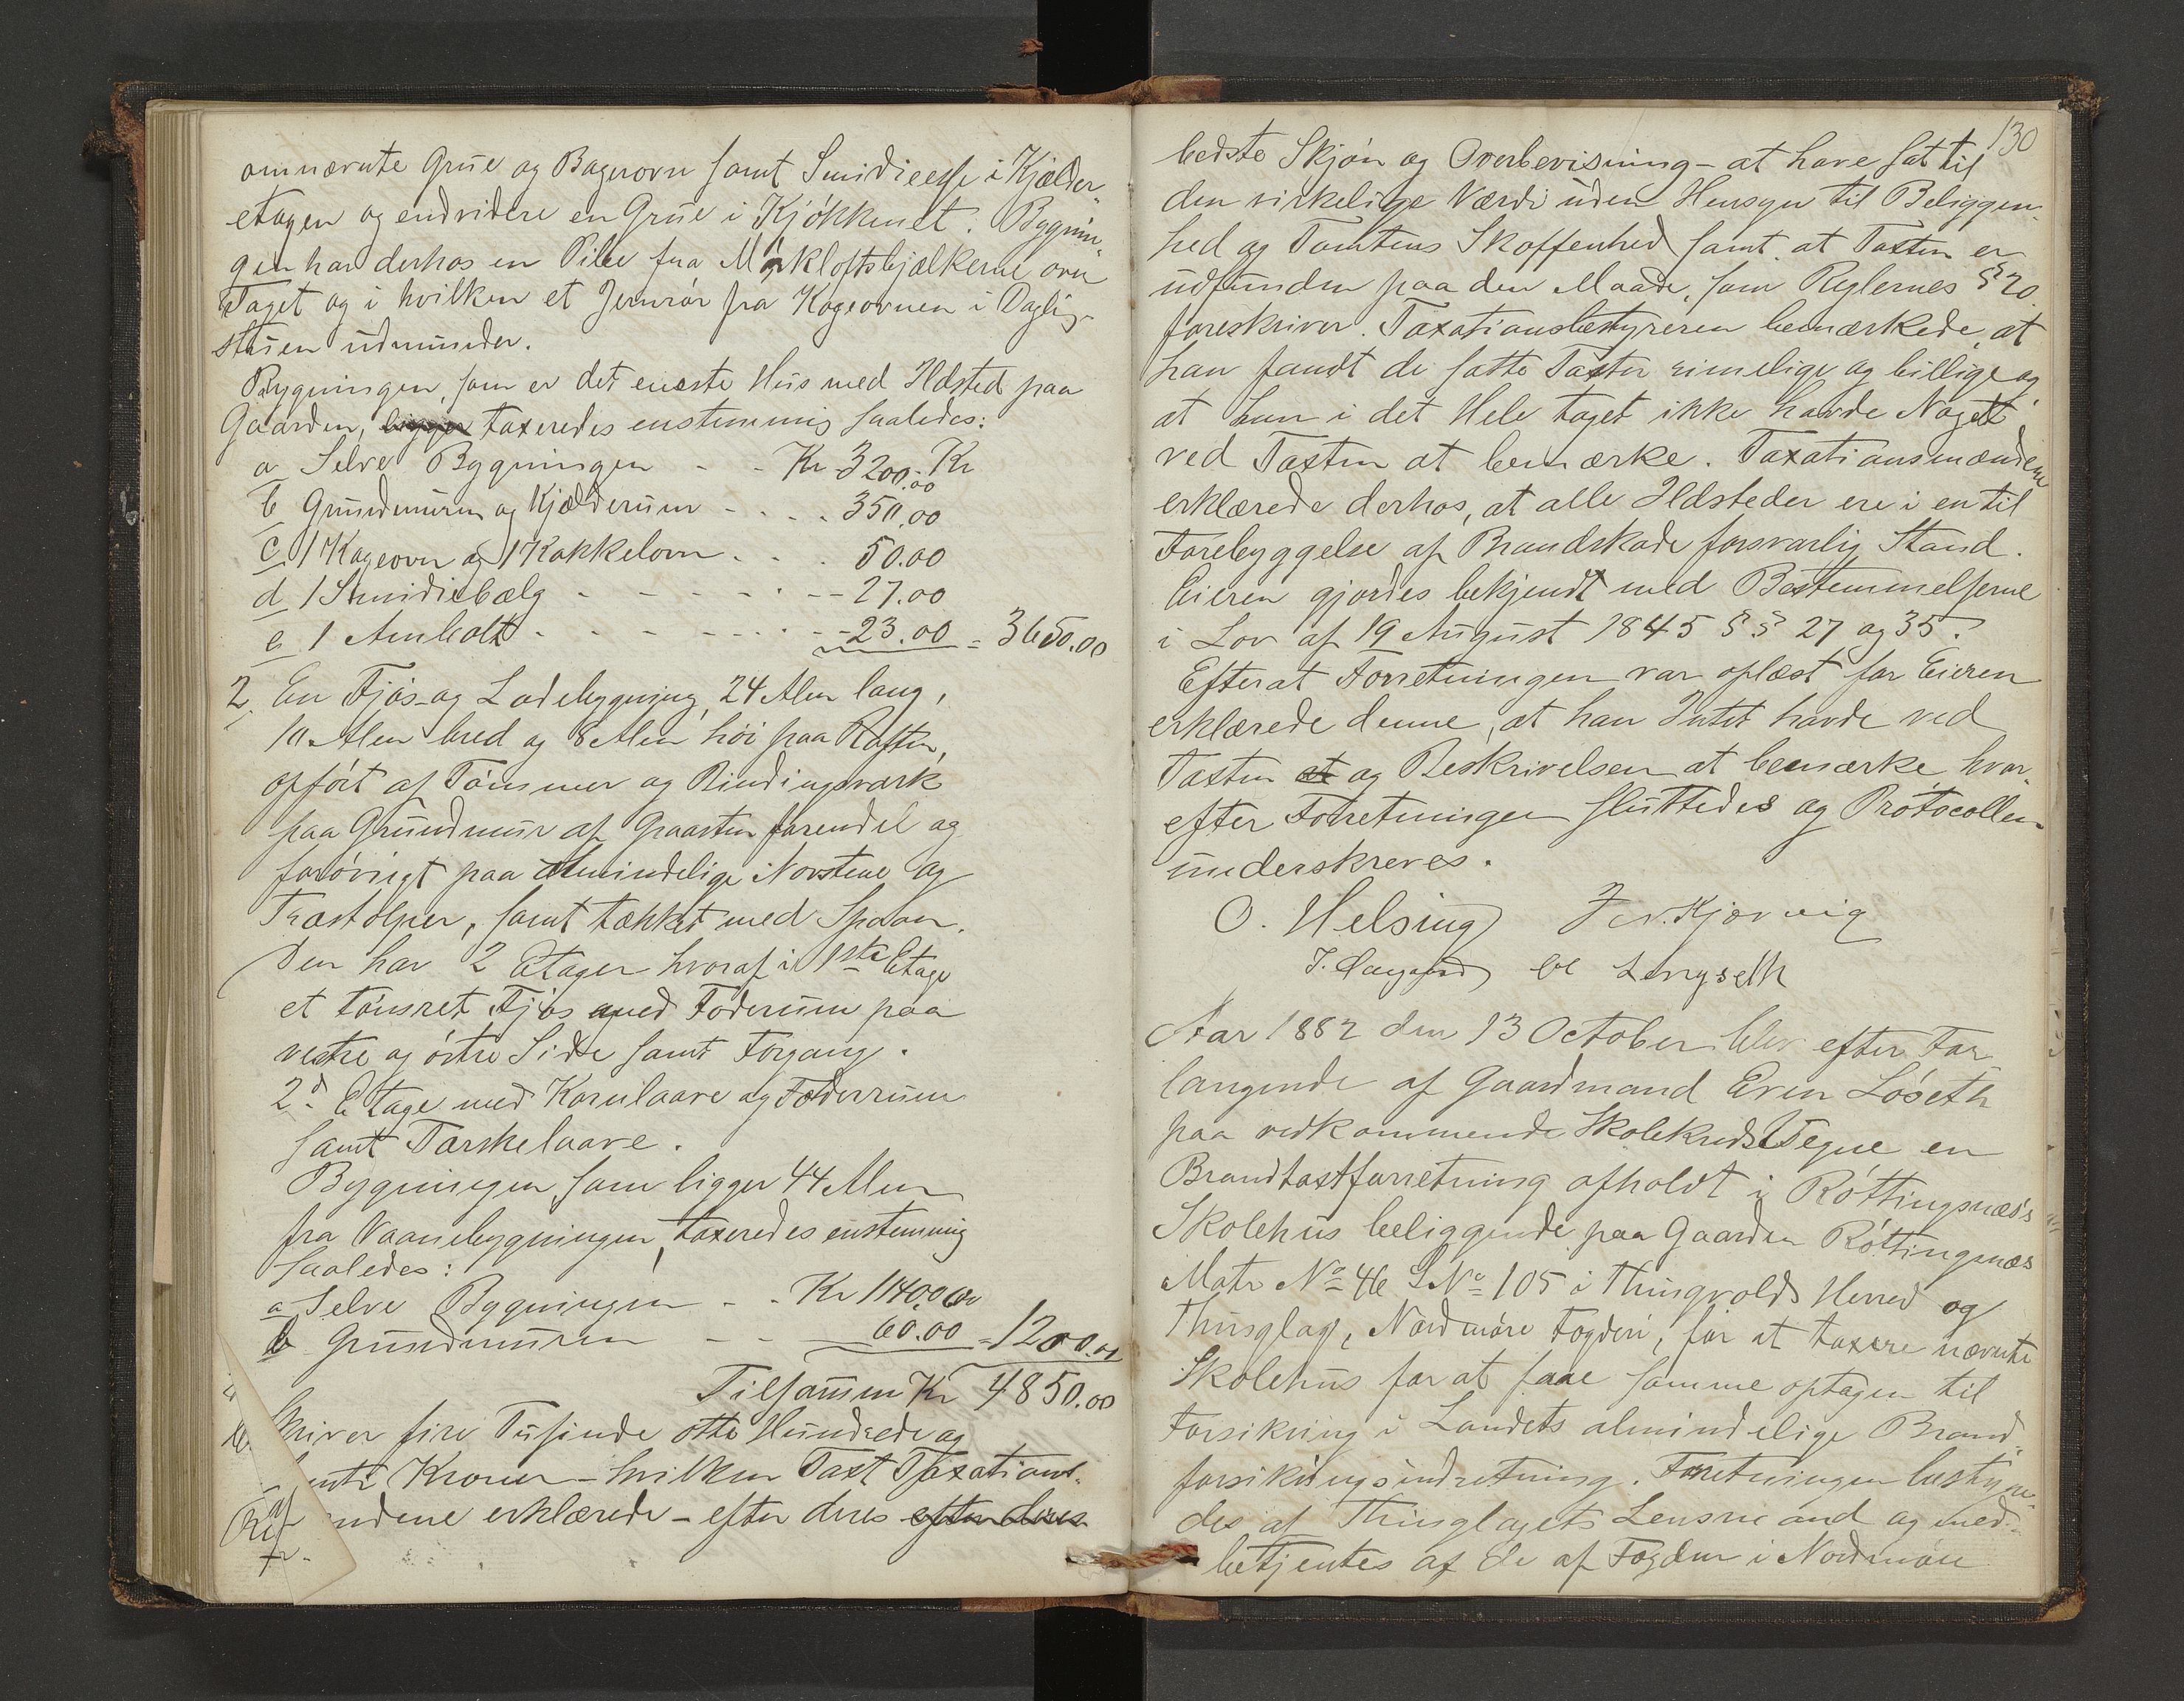 omnævnte Grue og Bagerovn samt Smidieesse i Kjælder-
etagen og endvidere en Grue i Kjøkkenet. Bygnin-
gen har derhos en Pibe fra Mørkloftsbjælkerne over
Taget og i hvilken et Jernrør fra Kogeovnen i Daglig-
stuen udmunder.
Bygningen, som er det eneste Hus med Ildsted paa
Gaarden, ligger taxeredes enstemmig saaledes:
a Selve Bygningen - - Kr 3200.00 Kr
b Grundmuren og Kjælderum - - - - 350.00
c 1 Kogeovn og 1 Kakkelovn - - - 50.00
d 1 Smidiebælg - - - - - - 27.00
e 1 Ambolt - - - - - - 23.00 = 3650.00
2. En Fjøs- og Ladebygning, 24 Alen lang,
10 Alen bred og 8 Alen høi paa Røsten,
opført af Tømmer og Bindingsværk
paa Grundmur af Graasten forendel og
forøvrigt paa almindelige Novstene og
Træstolper, samt tækket med Spaan.
Den har 2 Etager hvoraf i 1ste Etage
et tømret Fjøs med Foderum paa
vestre og østre Side samt Forgang.
2d Etage med Kornlaave og Foderrum
samt Tærskelaave.
Bygningen som ligger 44 Alen
fra Vaanebygningen, taxeredes enstemmig
saaledes:
a Selve Bygningen - - Kr 1140.00
b Grundmuren - - 60.00 = 1200.00
Tilsammen Kr 4850.00
skriver fire Tusinde otte Hundrede og
Kroner - hvilken Taxt Taxations-
mændene erklærede - efter deres efter deres
130
bedste Skjøn og Overbevisning - at have sat til
den virkelige Værdi uden Hensyn til Beliggen-
hed og Tomtens Skaffenhed samt at Taxten er
udfunden paa den Maade, som Reglernes § 20
foreskriver. Taxationsbestyreren bemærkede, at
han fandt de satte Taxter rimelige og billige og
at han i det Hele taget ikke havde Noget
ved Taxten at bemærke. Taxationsmændene
erklærede derhos, at alle Ildsteder ere i en til
Forebyggelse af Brandskade forsvarlig Stand.
Eieren gjordes bekjendt med Bestemmelserne
i Lov af 19 August 1845 §§ 27 og 35.
Efterat Forretningen var oplæst for Eieren
erklærede denne, at han Intet havde ved
Taxten at og Beskrivelsen at bemærke, hvor-
efter Forretningen sluttedes og Protocollen
underskreves.
O. Helsing J. N. Kjørvig
Aar 1882 den 13 October blev efter For
langende af Gaardmand Even Løseth
paa vedkommende Skolekreds Vegne en
Brandtaxtforretning afholdt i Røttingsnæs's
Skolehus beliggende paa Gaarden Røttingsnæs
Matr No 46 L No 105 i Thingvolds Herred og
Thinglag, Nordmøre Fogderi, for at taxere nævnte
Skolehus for at faae samme optagen til
Forsikring i Landets almindelige Brand-
forsikringsindretning. Forretningen bestyre-
des af Thinglagets Lensmand og med-
betjentes af de af Fogden i Nordmøre